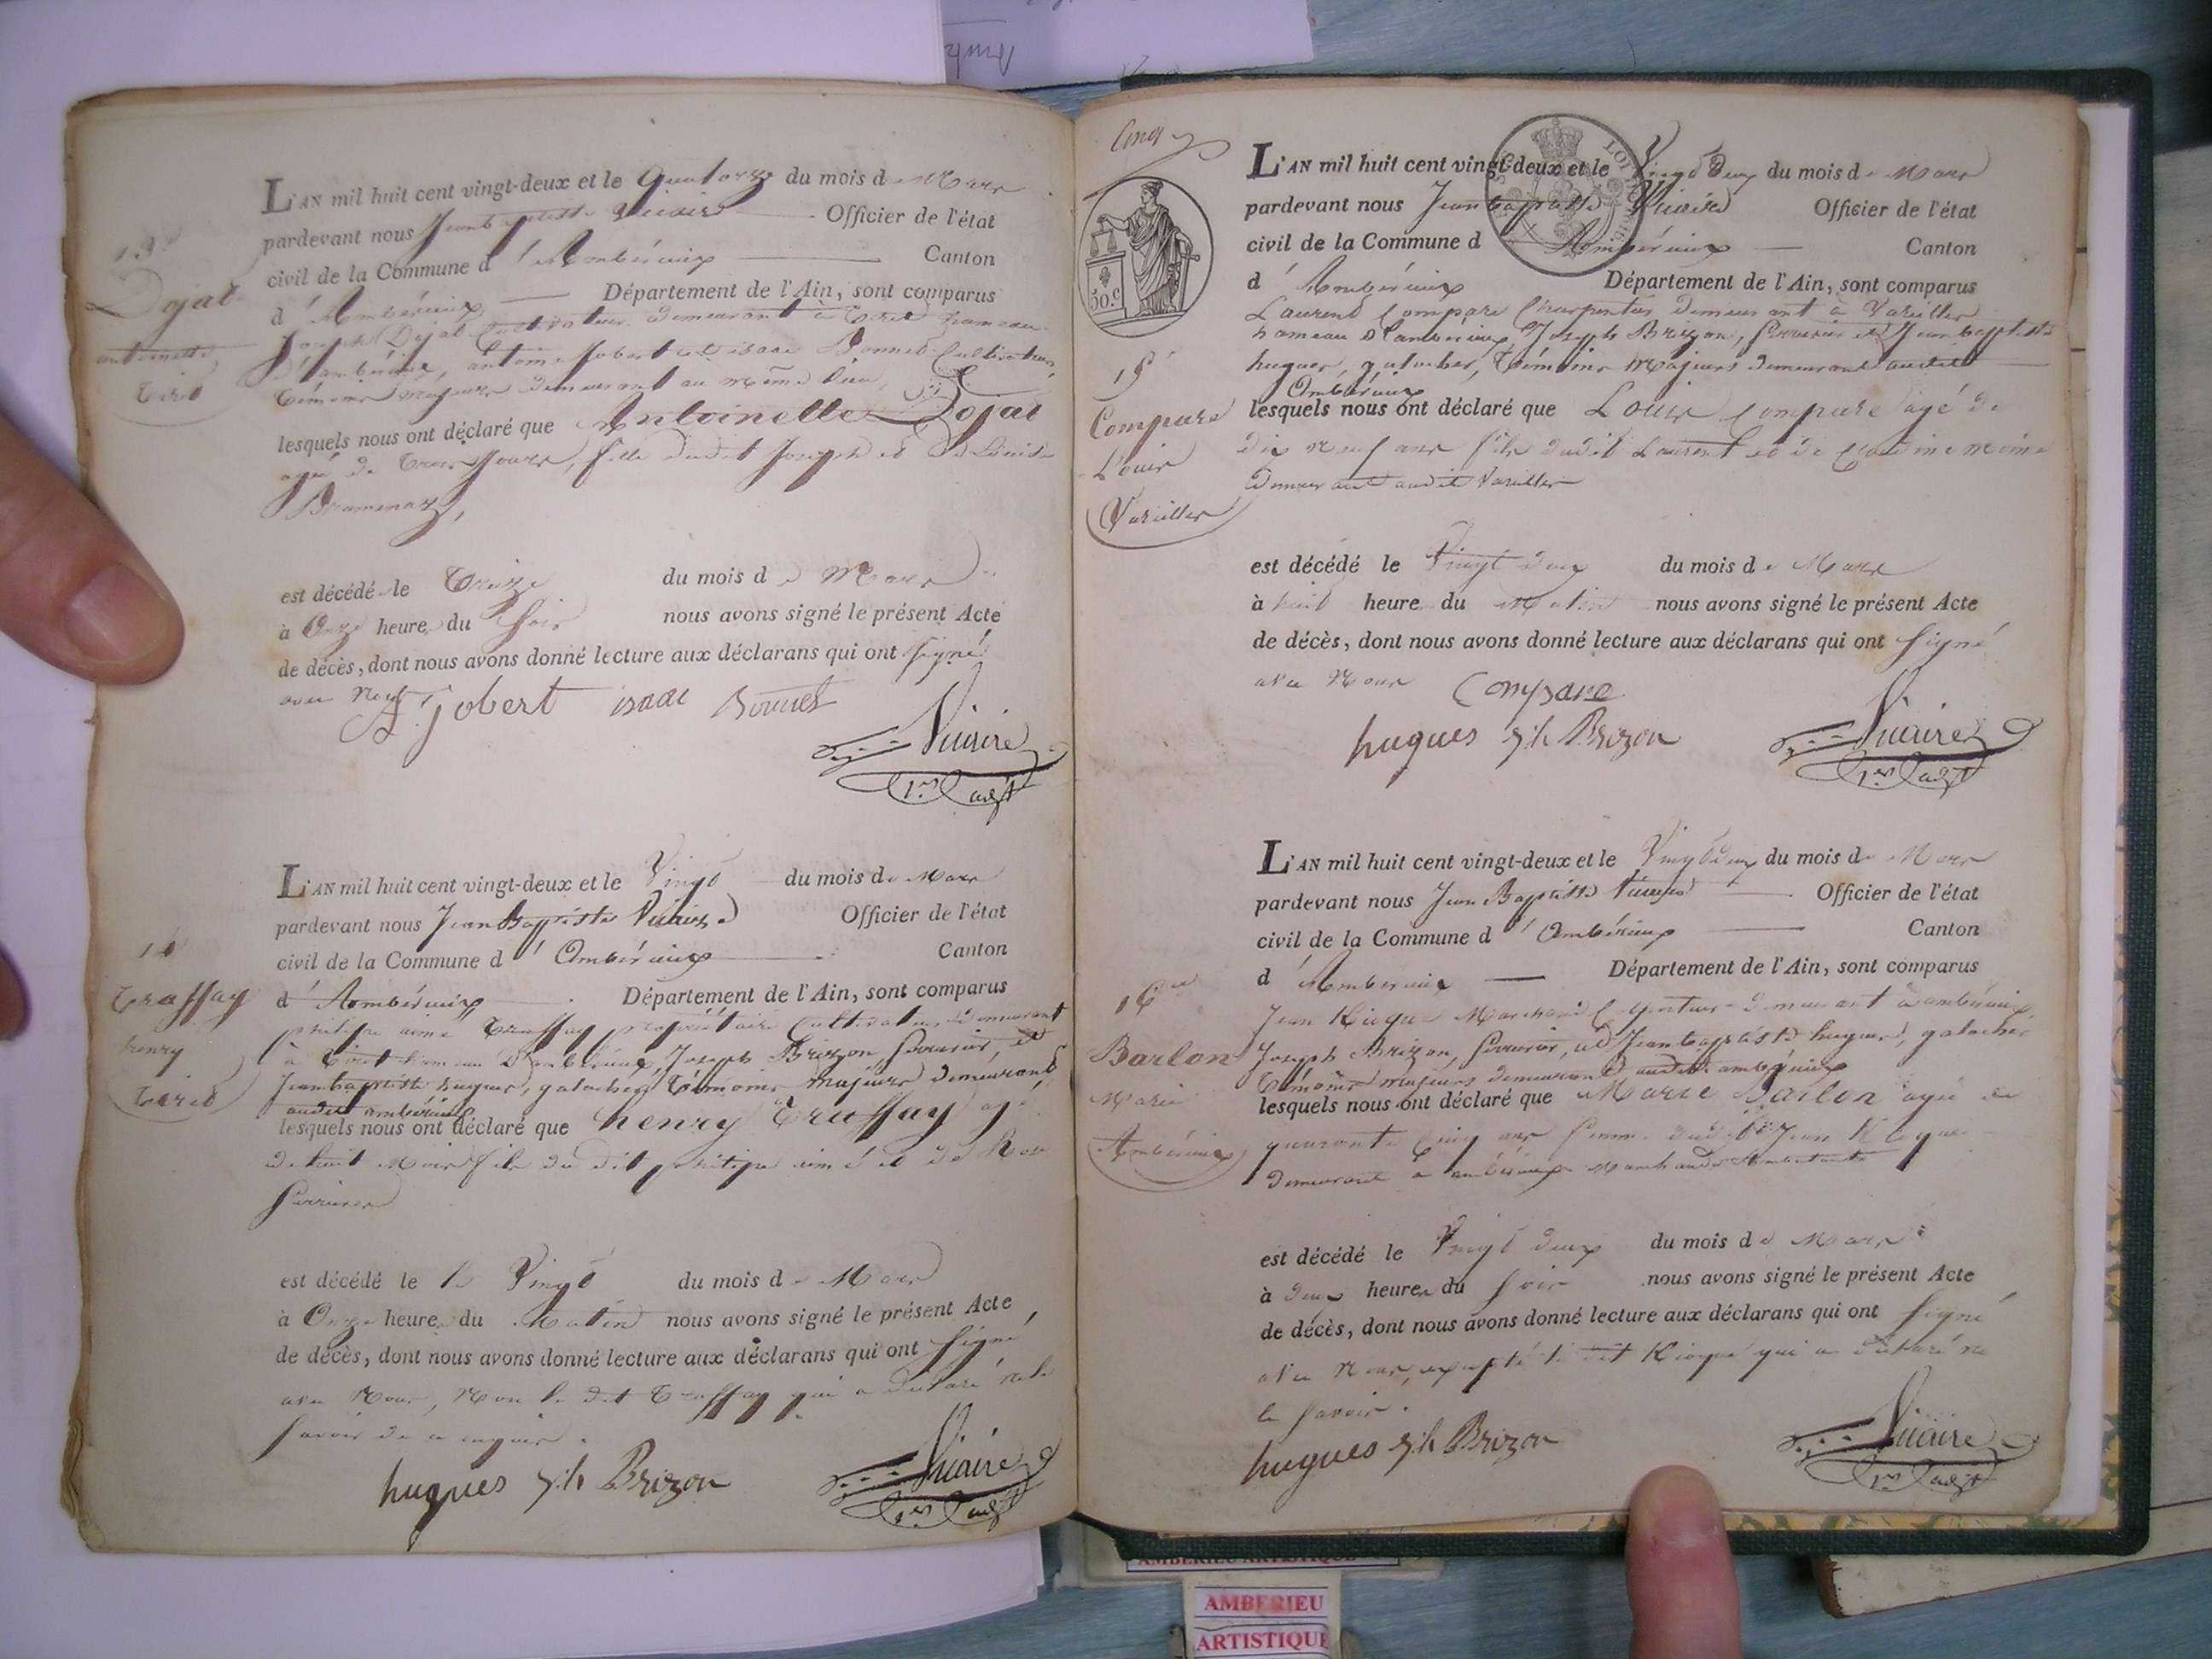 13e
Dojat
antoinette
Tiret
L'AN mil huit cent vingt-deux et le quatorze du mois de Mars
pardevant nous Jean baptiste Vicaire Officier de l'état
civil de la Commune d'Ambérieux Canton
d'Ambérieux Département de l'Ain, sont comparus
Joseph Dojat Cultivateur demeurant à Tiret hameau
d'ambérieux, antoine Jobert et isaac Bonnet Cultivateurs,
témoins majeurs demeurant au même lieu,
lesquels nous ont déclaré que Antoinette Dojat
agée de trois jours, fille dudit Joseph et de
Bramenaz,
est décédé le Treize du mois de Mars
à Onze heures du Soir nous avons signé le présent Acte
de décès, dont nous avons donné lecture aux déclarans qui ont signé
avec nous
A. jobert isaac Bonnet
Vicaire
1er adjt
14
Truffay
henry
Tiret
L'AN mil huit cent vingt-deux et le Vingt du mois de Mars
pardevant nous Jean Baptiste Vicaire Officier de l'état
civil de la Commune d'Ambérieux Canton
d'Ambérieux Département de l'Ain, sont comparus
aimé Truffay propriétaire Cultivateur, demeurant
à Tiret hameau d'ambérieux, Joseph Brizon Serrurier, et
Jean baptiste hugues, galocher, Témoins majeurs demeurant
audit ambérieux
lesquels nous ont déclaré que henry Truffay agé
de huit Mois fils du dit aimé et de
est décédé le le Vingt du mois de Mars
à Onze heures du Matin nous avons signé le présent Acte
de décès, dont nous avons donné lecture aux déclarans qui ont signé
avec Nous, Non le dit Truffay qui a déclaré ne le
savoir de ce enquis.
hugues j.h Brizon
Vicaire
1er adjt
Cinq
LOI
50.c
15
Compare
Louis
Vareilles
L'AN mil huit cent vingt-deux et le Vingt Deux du mois de Mars
pardevant nous Jean baptiste Vicaire Officier de l'état
civil de la Commune d'Ambérieux Canton
d'Ambérieux Département de l'Ain, sont comparus
Laurent Compare Charpentier demeurant à Vareilles
hameau d'ambérieux, Joseph Brizon, Serrurier et Jean baptiste
hugues, galocher, Témoins Majeurs demeurant audit
Ambérieux
lesquels nous ont déclaré que Louis Compare agé de
dix neuf ans fils dudit Laurent et de
demeurant audit Vareilles
est décédé le Vingt deux du mois de Mars
à huit heure du Matin nous avons signé le présent Acte
de décès, dont nous avons donné lecture aux déclarans qui ont signé
avec Nous Compare
hugues j.h Brizon
Vicaire
1er adjt
16me
Barlon
Marie
Ambérieux
L'AN mil huit cent vingt-deux et le Vingt deux du mois de Mars
pardevant nous Jean Baptiste Vicaire Officier de l'état
civil de la Commune d'Ambérieux Canton
d'Ambérieux Département de l'Ain, sont comparus
Jean Marchand demeurant à ambérieux
Joseph Brizon, Serrurier, et Jean baptiste hugues, galocher
Témoins Majeurs demeurant audit ambérieux
lesquels nous ont déclaré que Marie Barlon agée de
quarante Cinq ans femme dudit Jean
demeurant à ambérieux Marchande Ambulante
est décédé le Vingt deux du mois de Mars
à deux heures du Soir nous avons signé le présent Acte
de décès, dont nous avons donné lecture aux déclarans qui ont signé
avec Nous, excepté le dit qui a déclaré ne
le savoir.
hugues j.h Brizon
Vicaire
1er adjt
AMBERIEU ARTISTIQUE
AMBERIEU
ARTISTIQUE